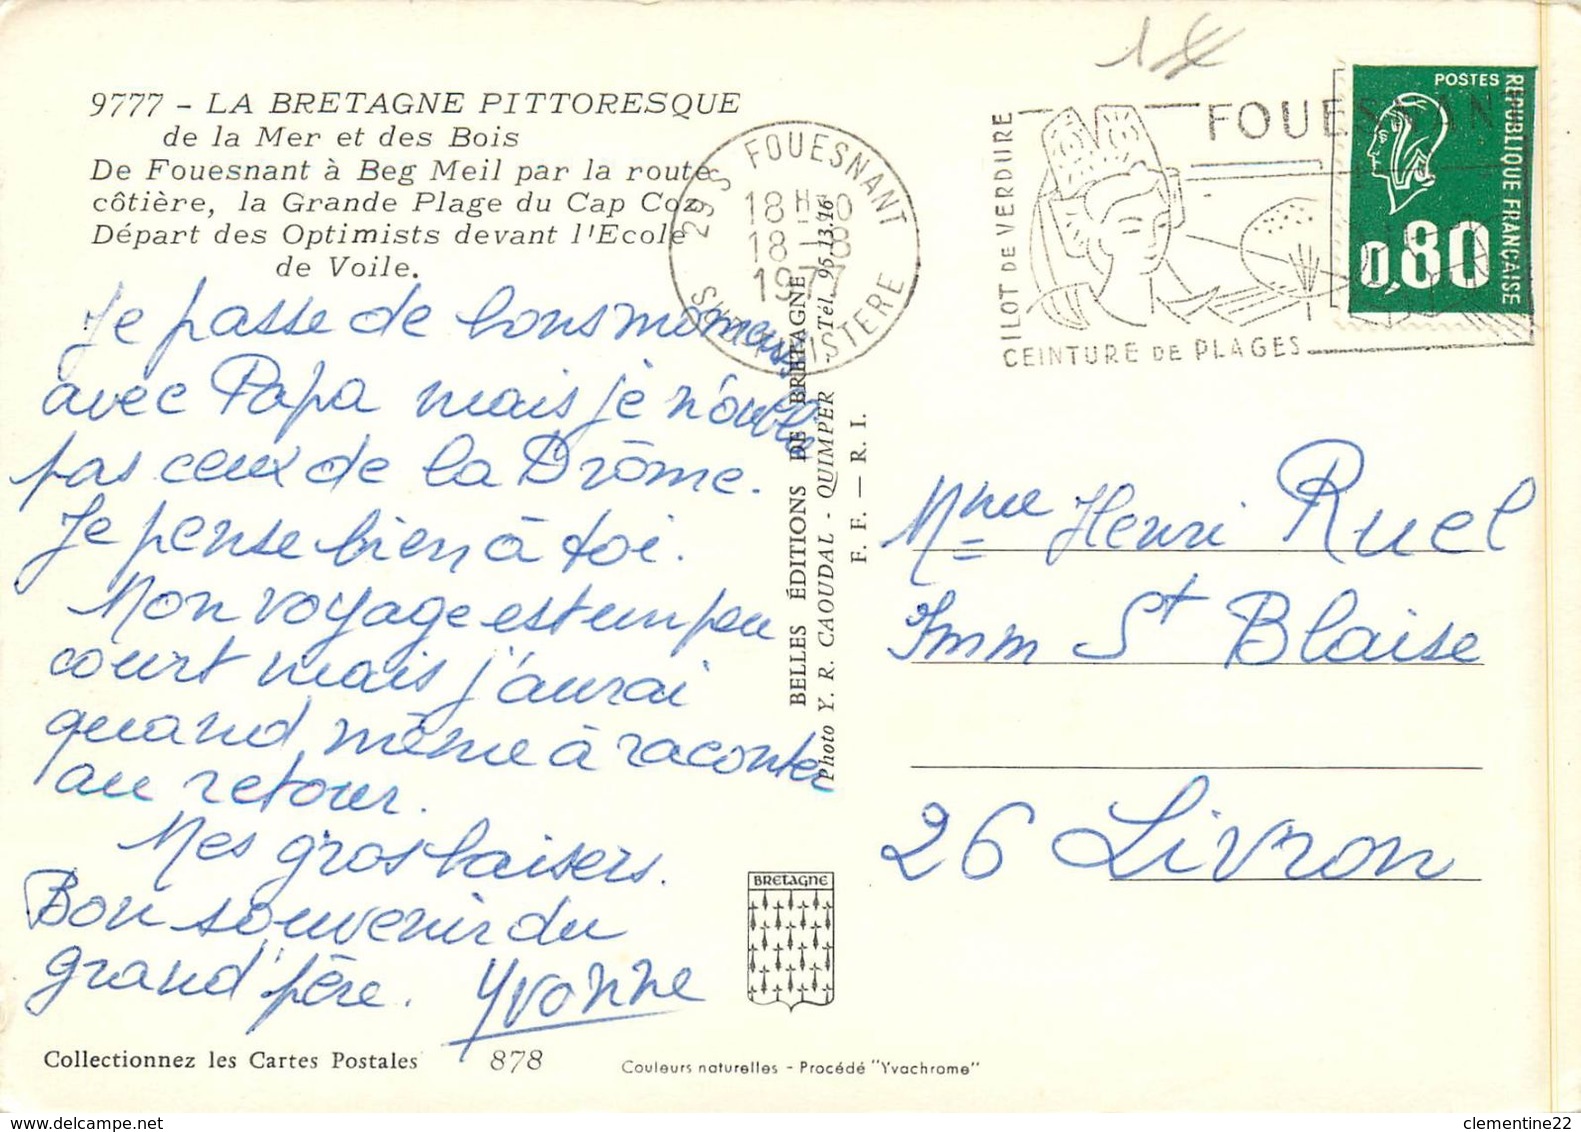 9777 - LA BRETAGNE PITTORESQUE
de la Mer et des Bois
De Fouesnant à Beg Meil par la route
côtière, la Grande Plage du Cap Coz
Départ des Optimists devant l'Ecole
de Voile.
Je passe de bons moments
avec Papa mais je n'oublie
pas ceux de la Drôme.
Je pense bien à toi.
Mon voyage est un peu
court mais j'aurai
quand même à raconter
au retour.
Mes gros baisers.
Bon souvenir du
grand'père. Yvonne
Collectionnez les Cartes Postales
878
Couleurs naturelles - Procédé "Yvachrome"
BRETAGNE
BELLES ÉDITIONS DE BRETAGNE
Photo Y. R. CAOUDAL - QUIMPER Tél. 95.13.16
F. F. — R. I.
29 S FOUESNANT
18H 0
18 - 8
1977
S FINISTERE
FOUESNANT
ILOT DE VERDURE
CEINTURE DE PLAGES
POSTES
REPUBLIQUE FRANÇAISE
0,80
Mme Henri Ruel
Imm St Blaise
26 Livron
clementine22